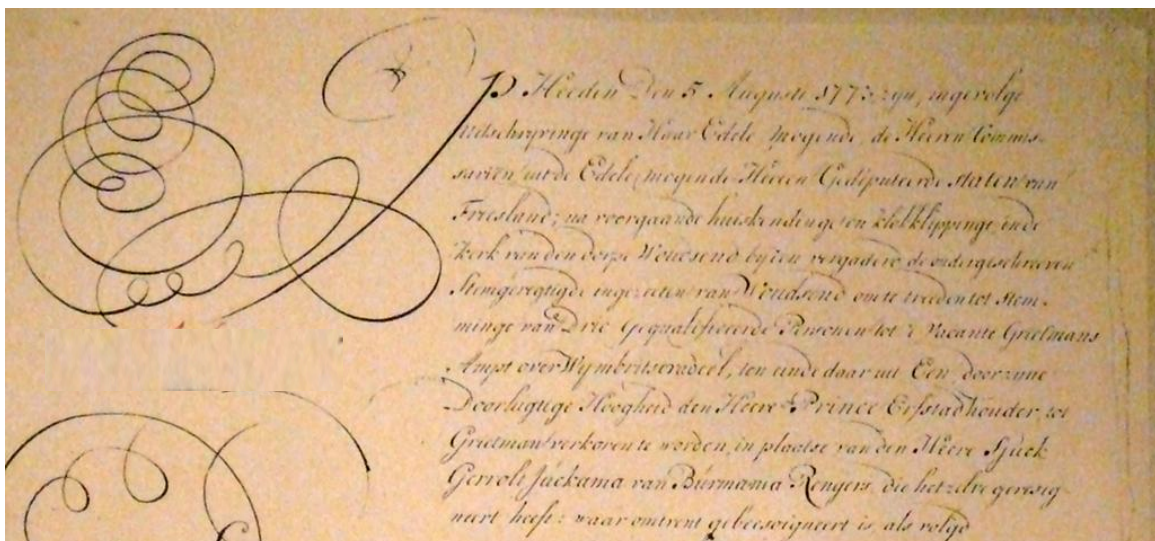 Op Heeden Den 5 Augusti 1773, zijn, ingevolge
uitschryvinge van Haar Edele Mogende, de Heeren Commis-
sarien uit de Edele Mogende Heeren Gedeputeerde Staten van
Freesland; na voorgaande huiskendinge en klokklippinge, in de
Kerk van den dorpe Woudsend by een vergadert de ondergeschreeven
Stemgeregtigde ingezeeten van Woudsend om te treeden tot stem-
minge van Drie Gequalificeerde Personen tot 't Vacante Grietmans
Ampt over Wymbritseradeel, ten einde daar uit Een door zyne
Doorlugtige Hoogheid den Heere Prince Erfstadhouder, tot
Grietman verkoren te worden, in plaatse van den Heere Sjuck
Gerrolt Juckama van Burmania Rengers, die het zelve gereseg-
neert heeft: waar omtrent gebeesoigneert is, als volgd